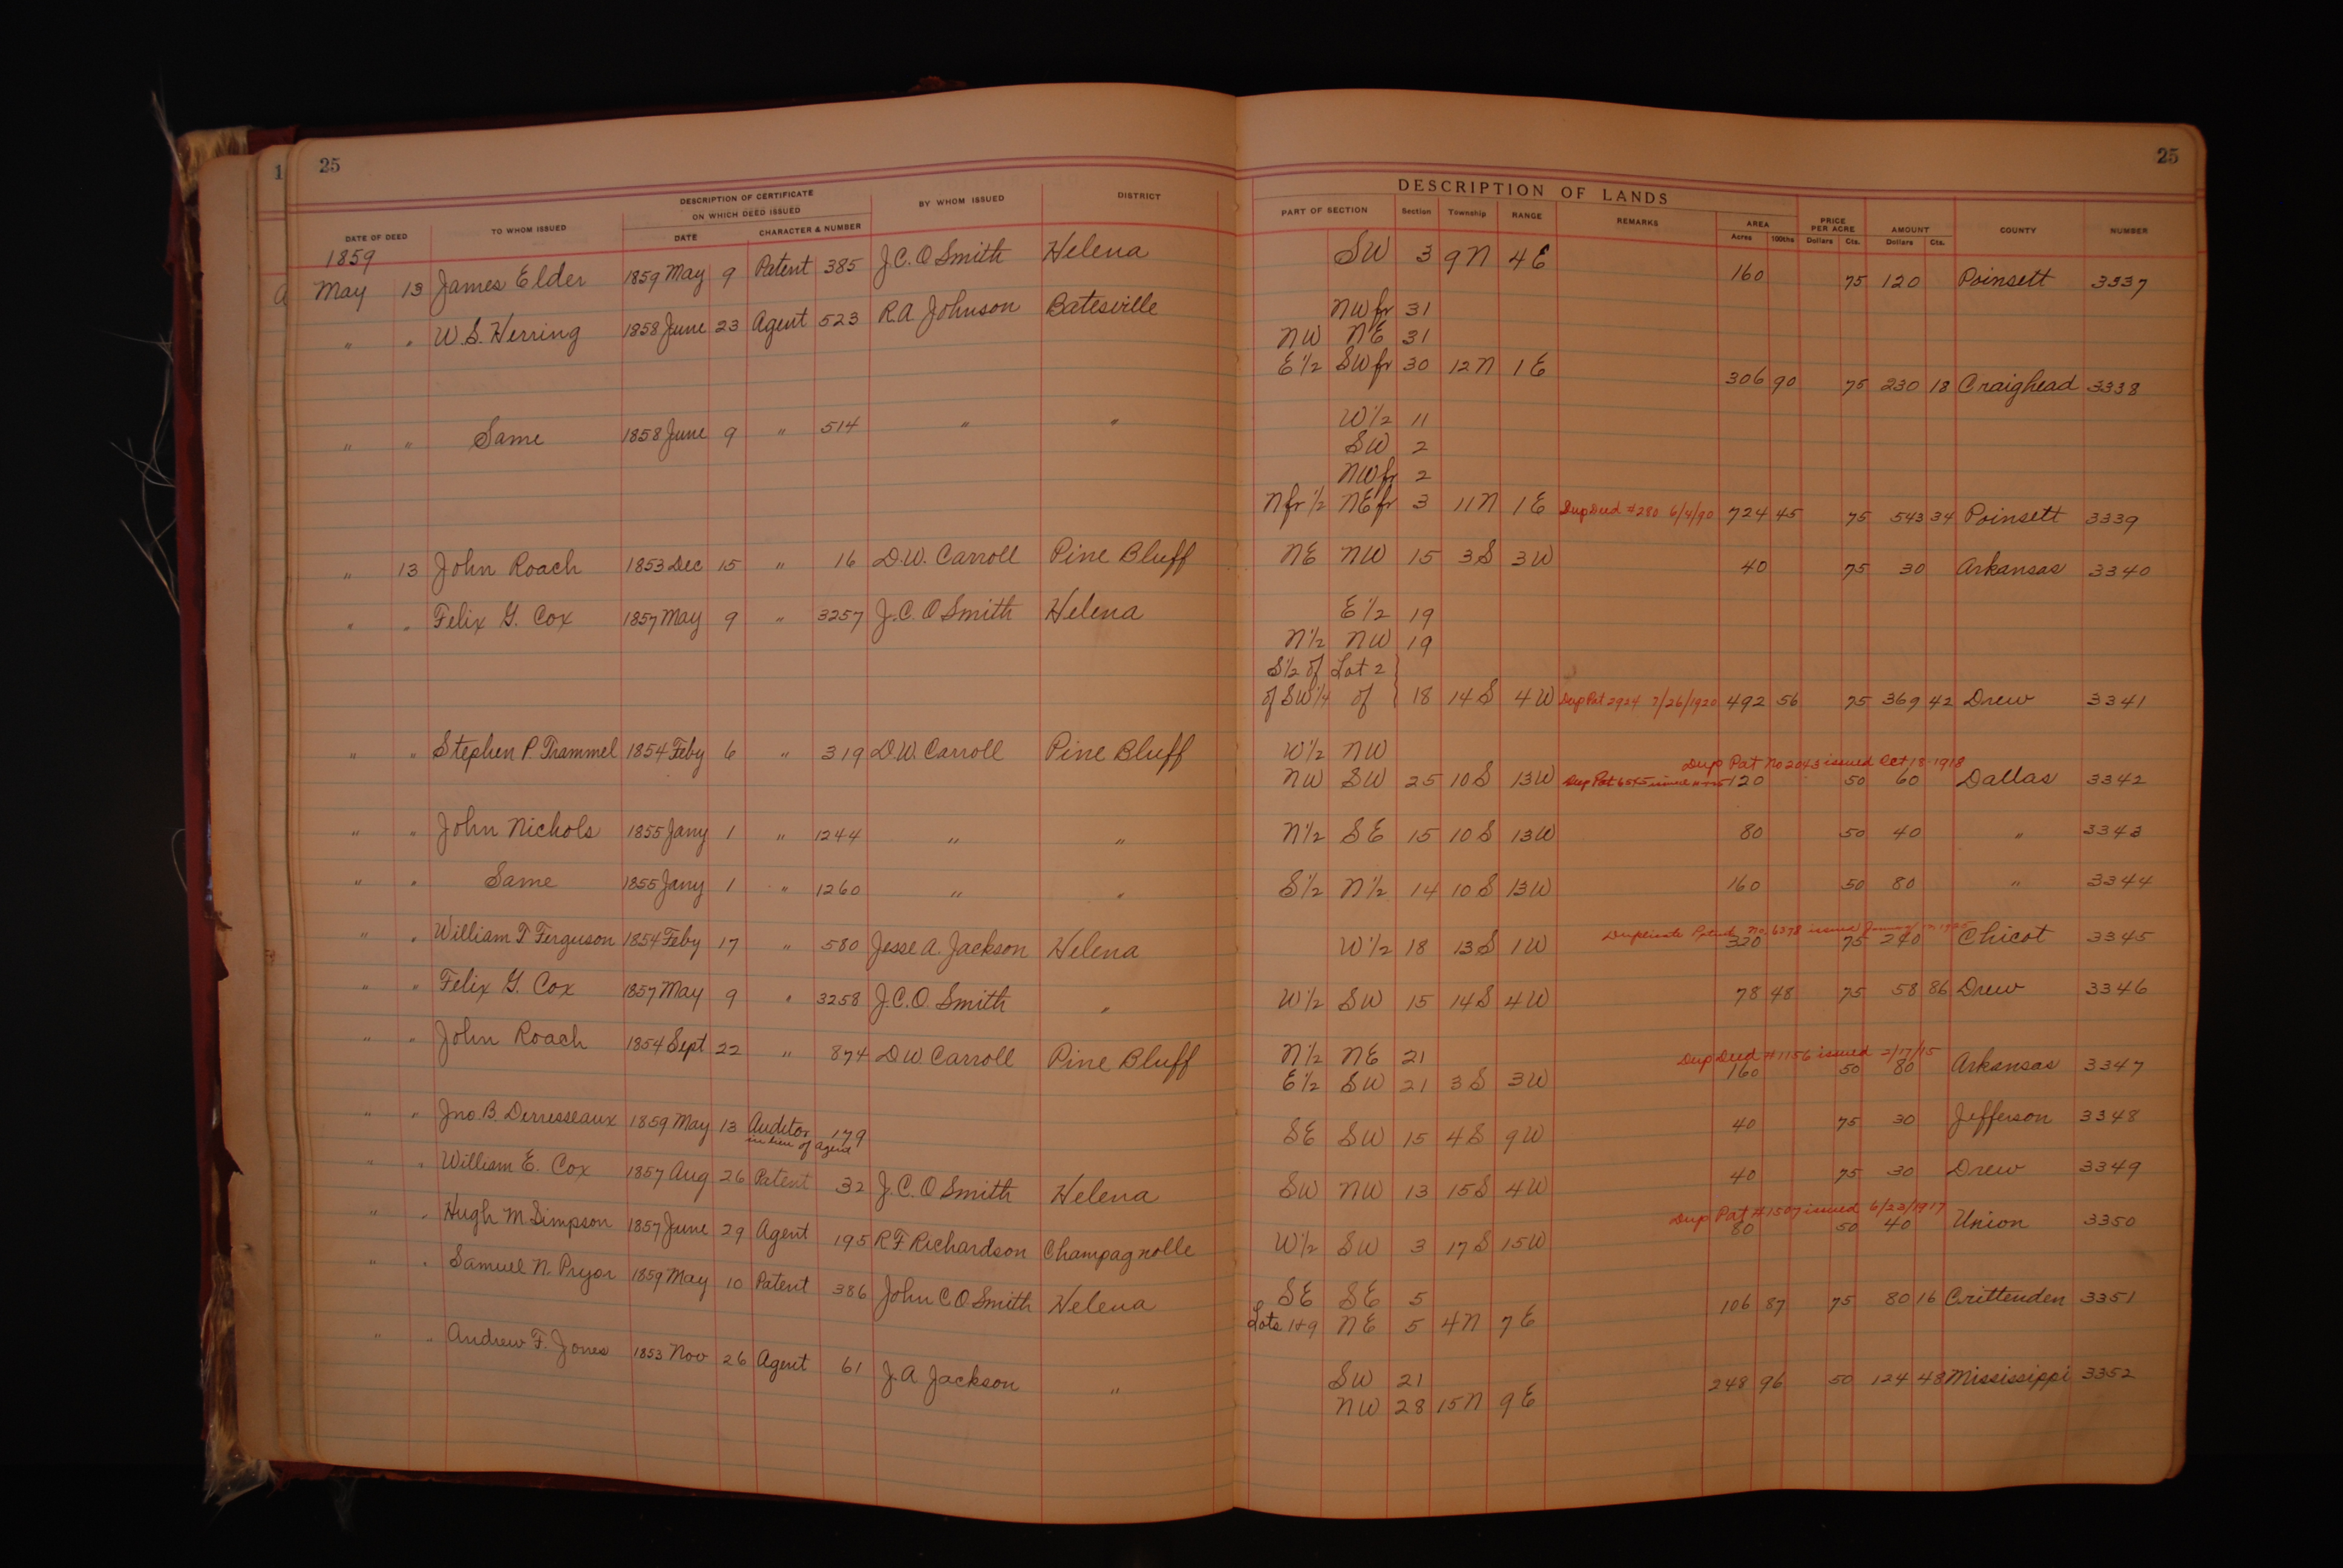 1
25
25
DESCRIPTION OF LANDS
DATE OF DEED TO WHOM ISSUED DESCRIPTION OF CERTIFICATE ON WHICH DEED ISSUED DATE CHARACTER & NUMBER BY WHOM ISSUED DISTRICT PART OF SECTION Section Township RANGE REMARKS AREA Acres 100ths PRICE PER ACRE Dollars Cts. AMOUNT Dollars Cts. COUNTY NUMBER
1859
May 13 James Elder 1859 May 9 Patent 385 J.C.O Smith Helena SW 3 9N 4E 160 75 120 Poinsett 3337
" " W.S. Herring 1858 June 23 Agent 523 R.A. Johnson Batesville NW fr 31
NW NE 31
E 1/2 SW fr 30 12N 1E 306 90 75 230 18 Craighead 3338
" " Same 1858 June 9 " 514 " " W 1/2 11
SW 2
NW fr 2
N fr 1/2 NE fr 3 11N 1E Dup Deed #280 6/4/90 724 45 75 543 34 Poinsett 3339
" 13 John Roach 1853 Dec 15 " 16 D.W. Carroll Pine Bluff NE NW 15 3S 3W 40 75 30 Arkansas 3340
" " Felix G. Cox 1857 May 9 " 3257 J.C.O Smith Helena E 1/2 19
N 1/2 NW 19
S 1/2 of Lot 2 }
of SW 1/4 of } 18 14S 4W Dup Pat 2924 7/26/1920 492 56 75 369 42 Drew 3341
" " Stephen P. Trammel 1854 Feby 6 " 319 D.W. Carroll Pine Bluff W 1/2 NW
Dup Pat No 2043 issued Oct 18-1918
NW SW 25 10S 13W Dup Pat issued 120 50 60 Dallas 3342
" " John Nichols 1855 Jany 1 " 1244 " " N 1/2 SE 15 10S 13W 80 50 40 " 3343
" " Same 1855 Jany 1 " 1260 " " S 1/2 N 1/2 14 10S 13W 160 50 80 " 3344
Duplicate Patent No. 6378 issued
" " William T Ferguson 1854 Feby 17 " 580 Jesse A. Jackson Helena W 1/2 18 13S 1W 320 75 240 Chicot 3345
" " Felix G. Cox 1857 May 9 " 3258 J.C.O. Smith " W 1/2 SW 15 14S 4W 78 48 75 58 86 Drew 3346
" " John Roach 1854 Sept 22 " 874 D W Carroll Pine Bluff N 1/2 NE 21
Dup Deed #1156 issued 2/17/15
E 1/2 SW 21 3S 3W 160 50 80 Arkansas 3347
" " Jno. B. Derresseaux 1859 May 13 Auditor 179 SE SW 15 4S 9W 40 75 30 Jefferson 3348
in lieu of agent
" " William E. Cox 1857 Aug 26 Patent 32 J.C.O Smith Helena SW NW 13 15S 4W 40 75 30 Drew 3349
Dup Pat #1507 issued 6/23/1917
" " Hugh M Simpson 1857 June 29 Agent 195 R F Richardson Champagnolle W 1/2 SW 3 17S 15W 80 50 40 Union 3350
" " Samuel N. Pryor 1859 May 10 Patent 386 John C O Smith Helena SE SE 5 106 87 75 80 16 Crittenden 3351
Lots 1+9 NE 5 4N 7E
" " Andrew F. Jones 1853 Nov 26 Agent 61 J.A Jackson " SW 21 248 96 50 124 48 Mississippi 3352
NW 28 15N 9E